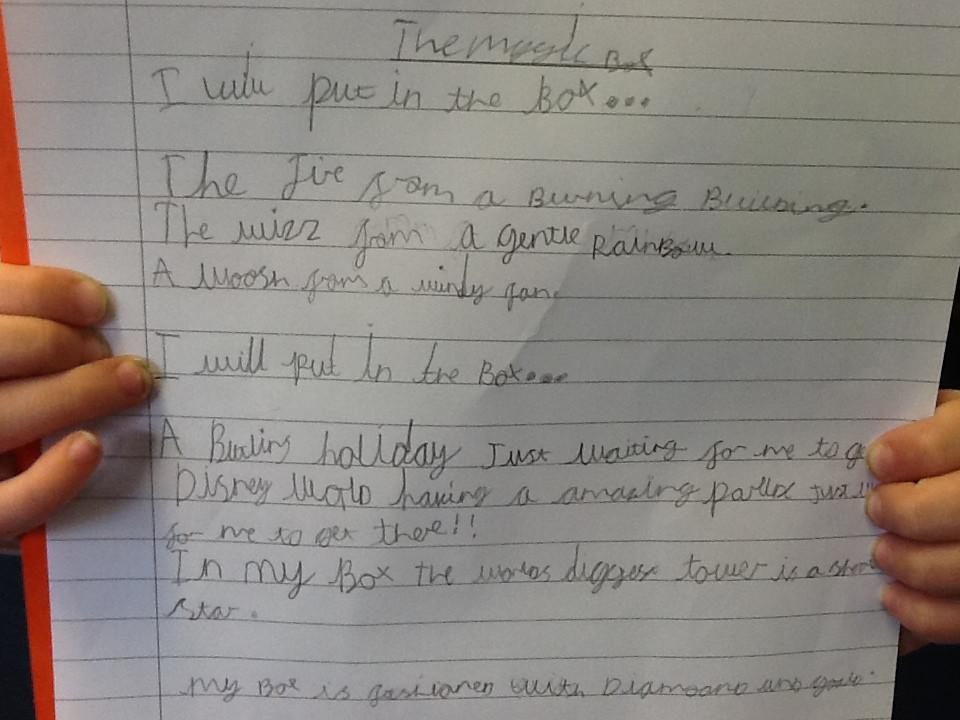 The magic Box
I will put in the Box...
The fire from a Burning Building.
The wizz from a gentle RainBow.
A woosh from a windy fan.
I will put in the Box...
A holiday Just waiting for me to
Disney World having a amazing
for me to get there!!
In my Box the worlds tower is a
star.
my Box is with Diamond and gold.